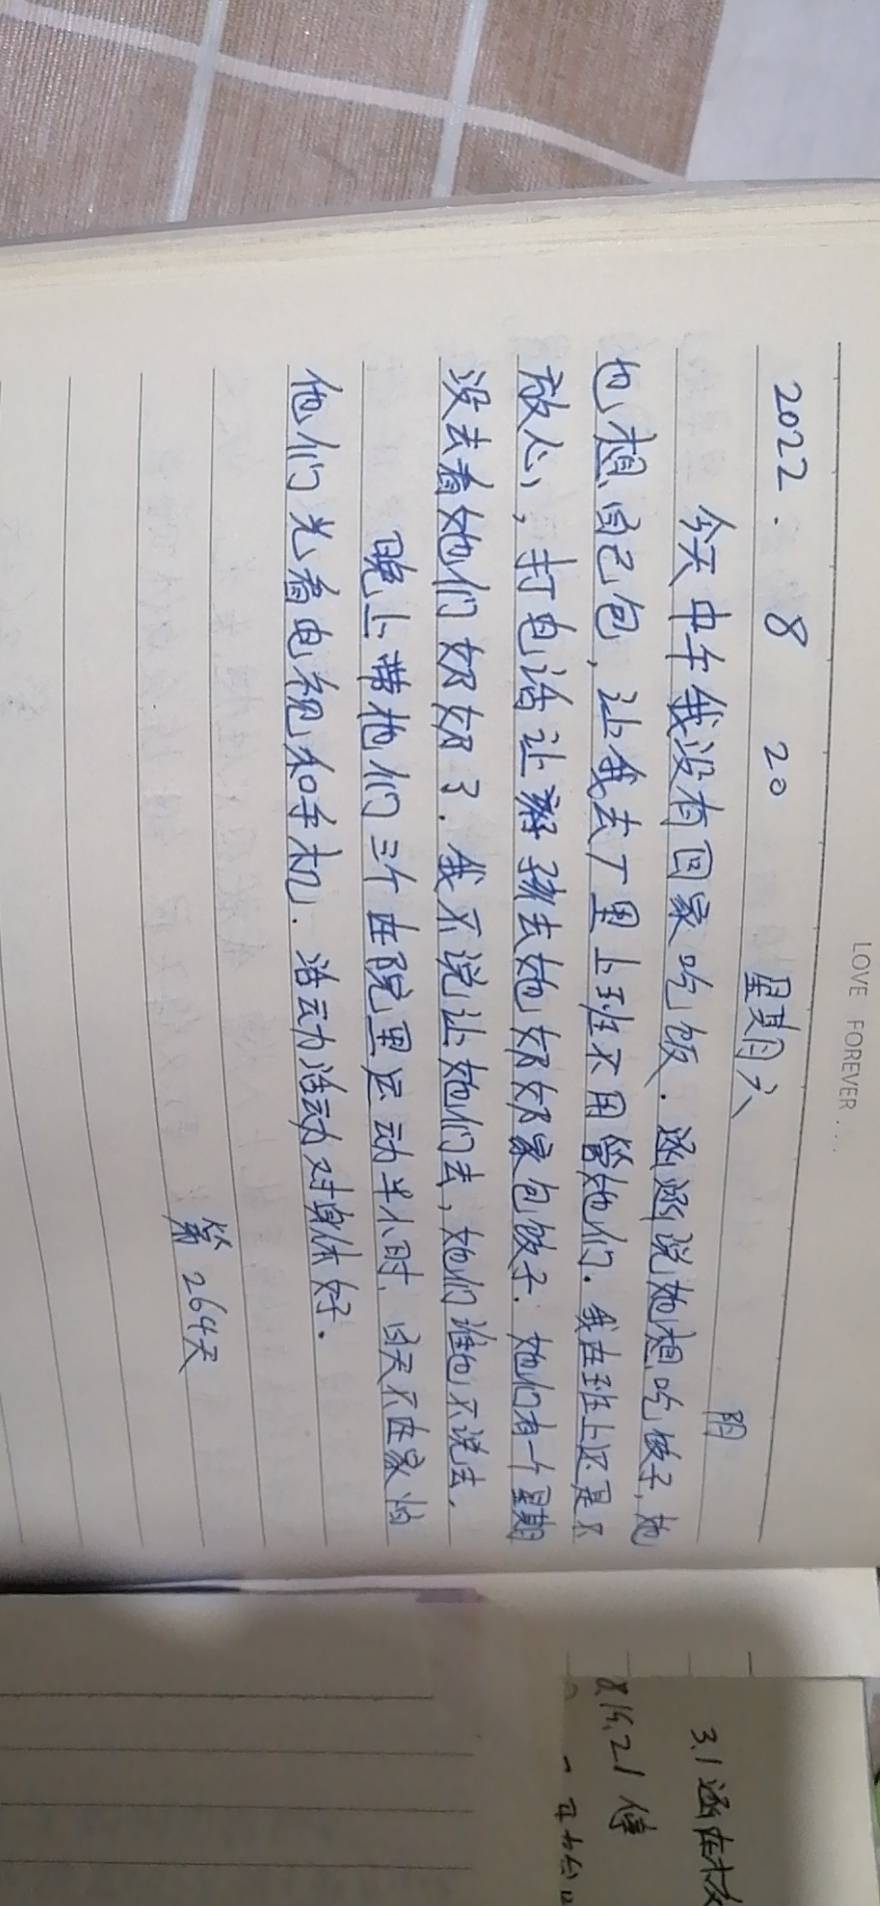 LOVE FOREVER ....
2022. 8 20 星期六 阴
今天中午我没有回家吃饭. 涵涵说她想吃饺子, 她
也想自己包, 让我去厂里上班不用管她们. 我在班上还是不
放心, 打电话让 去她奶奶家包饺子. 她们有一个星期
没去看她们奶奶了. 我不说让她们去, 她们谁也不说去.
晚上带他们三个在院里运动半小时. 白天不在家怕
他们光看电视和手机. 活动活动对身体好.
第264天
3.1涵在校
8.15.21停